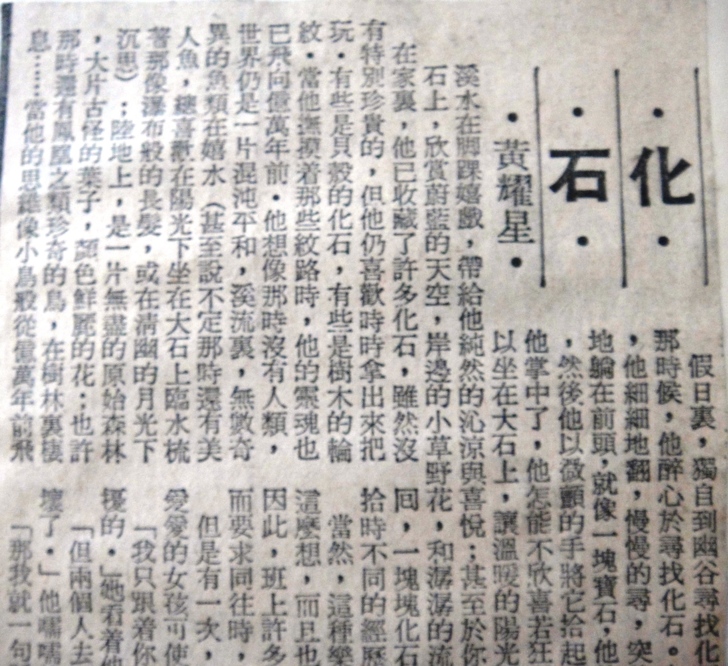 化
石
．黃耀星．
假日裏，獨自到幽谷尋找化
那時候，他醉心於尋找化石。
，他細細地翻，慢慢的尋，突
地躺在前頭，就像一塊寶石，他
，然後他以微顫的手將它拾起
他掌中了，他怎能不欣喜若狂
以坐在大石上，讓溫暖的陽光
溪水在脚踝嬉戲，帶給他純然的沁涼與喜悅；甚至於你
石上，欣賞蔚藍的天空，岸邊的小草野花，和潺潺的流
在家裏，他已收藏了許多化石，雖然沒
有特別珍貴的，但他仍喜歡時時拿出來把
玩．有些是貝殼的化石，有些是樹木的輪
紋．當他撫摸着那些紋路時，他的靈魂也
已飛向億萬年前．他想像那時沒有人類，
世界仍是一片混沌平和，溪流裏，無數奇
異的魚類在嬉水（甚至說不定那時還有美
人魚，總喜歡在陽光下坐在大石上臨水梳
著那像瀑布般的長髮，或在清幽的月光下
沉思）；陸地上，是一片無盡的原始森林
，大片古怪的葉子，顏色鮮麗的花；也許
那時還有鳳凰之類珍奇的鳥，在樹林裏棲
息……當他的思維像小鳥般從億萬年前飛
回，一塊塊化石
拾時不同的經歷
當然，這種樂
這麼想，而且也
因此，班上許多
而要求同往時，
但是有一次，
愛愛的女孩可使
「我只跟着你
擾的．」她看着他
「但兩個人去
壞了．」他囁嚅
「那我就一句